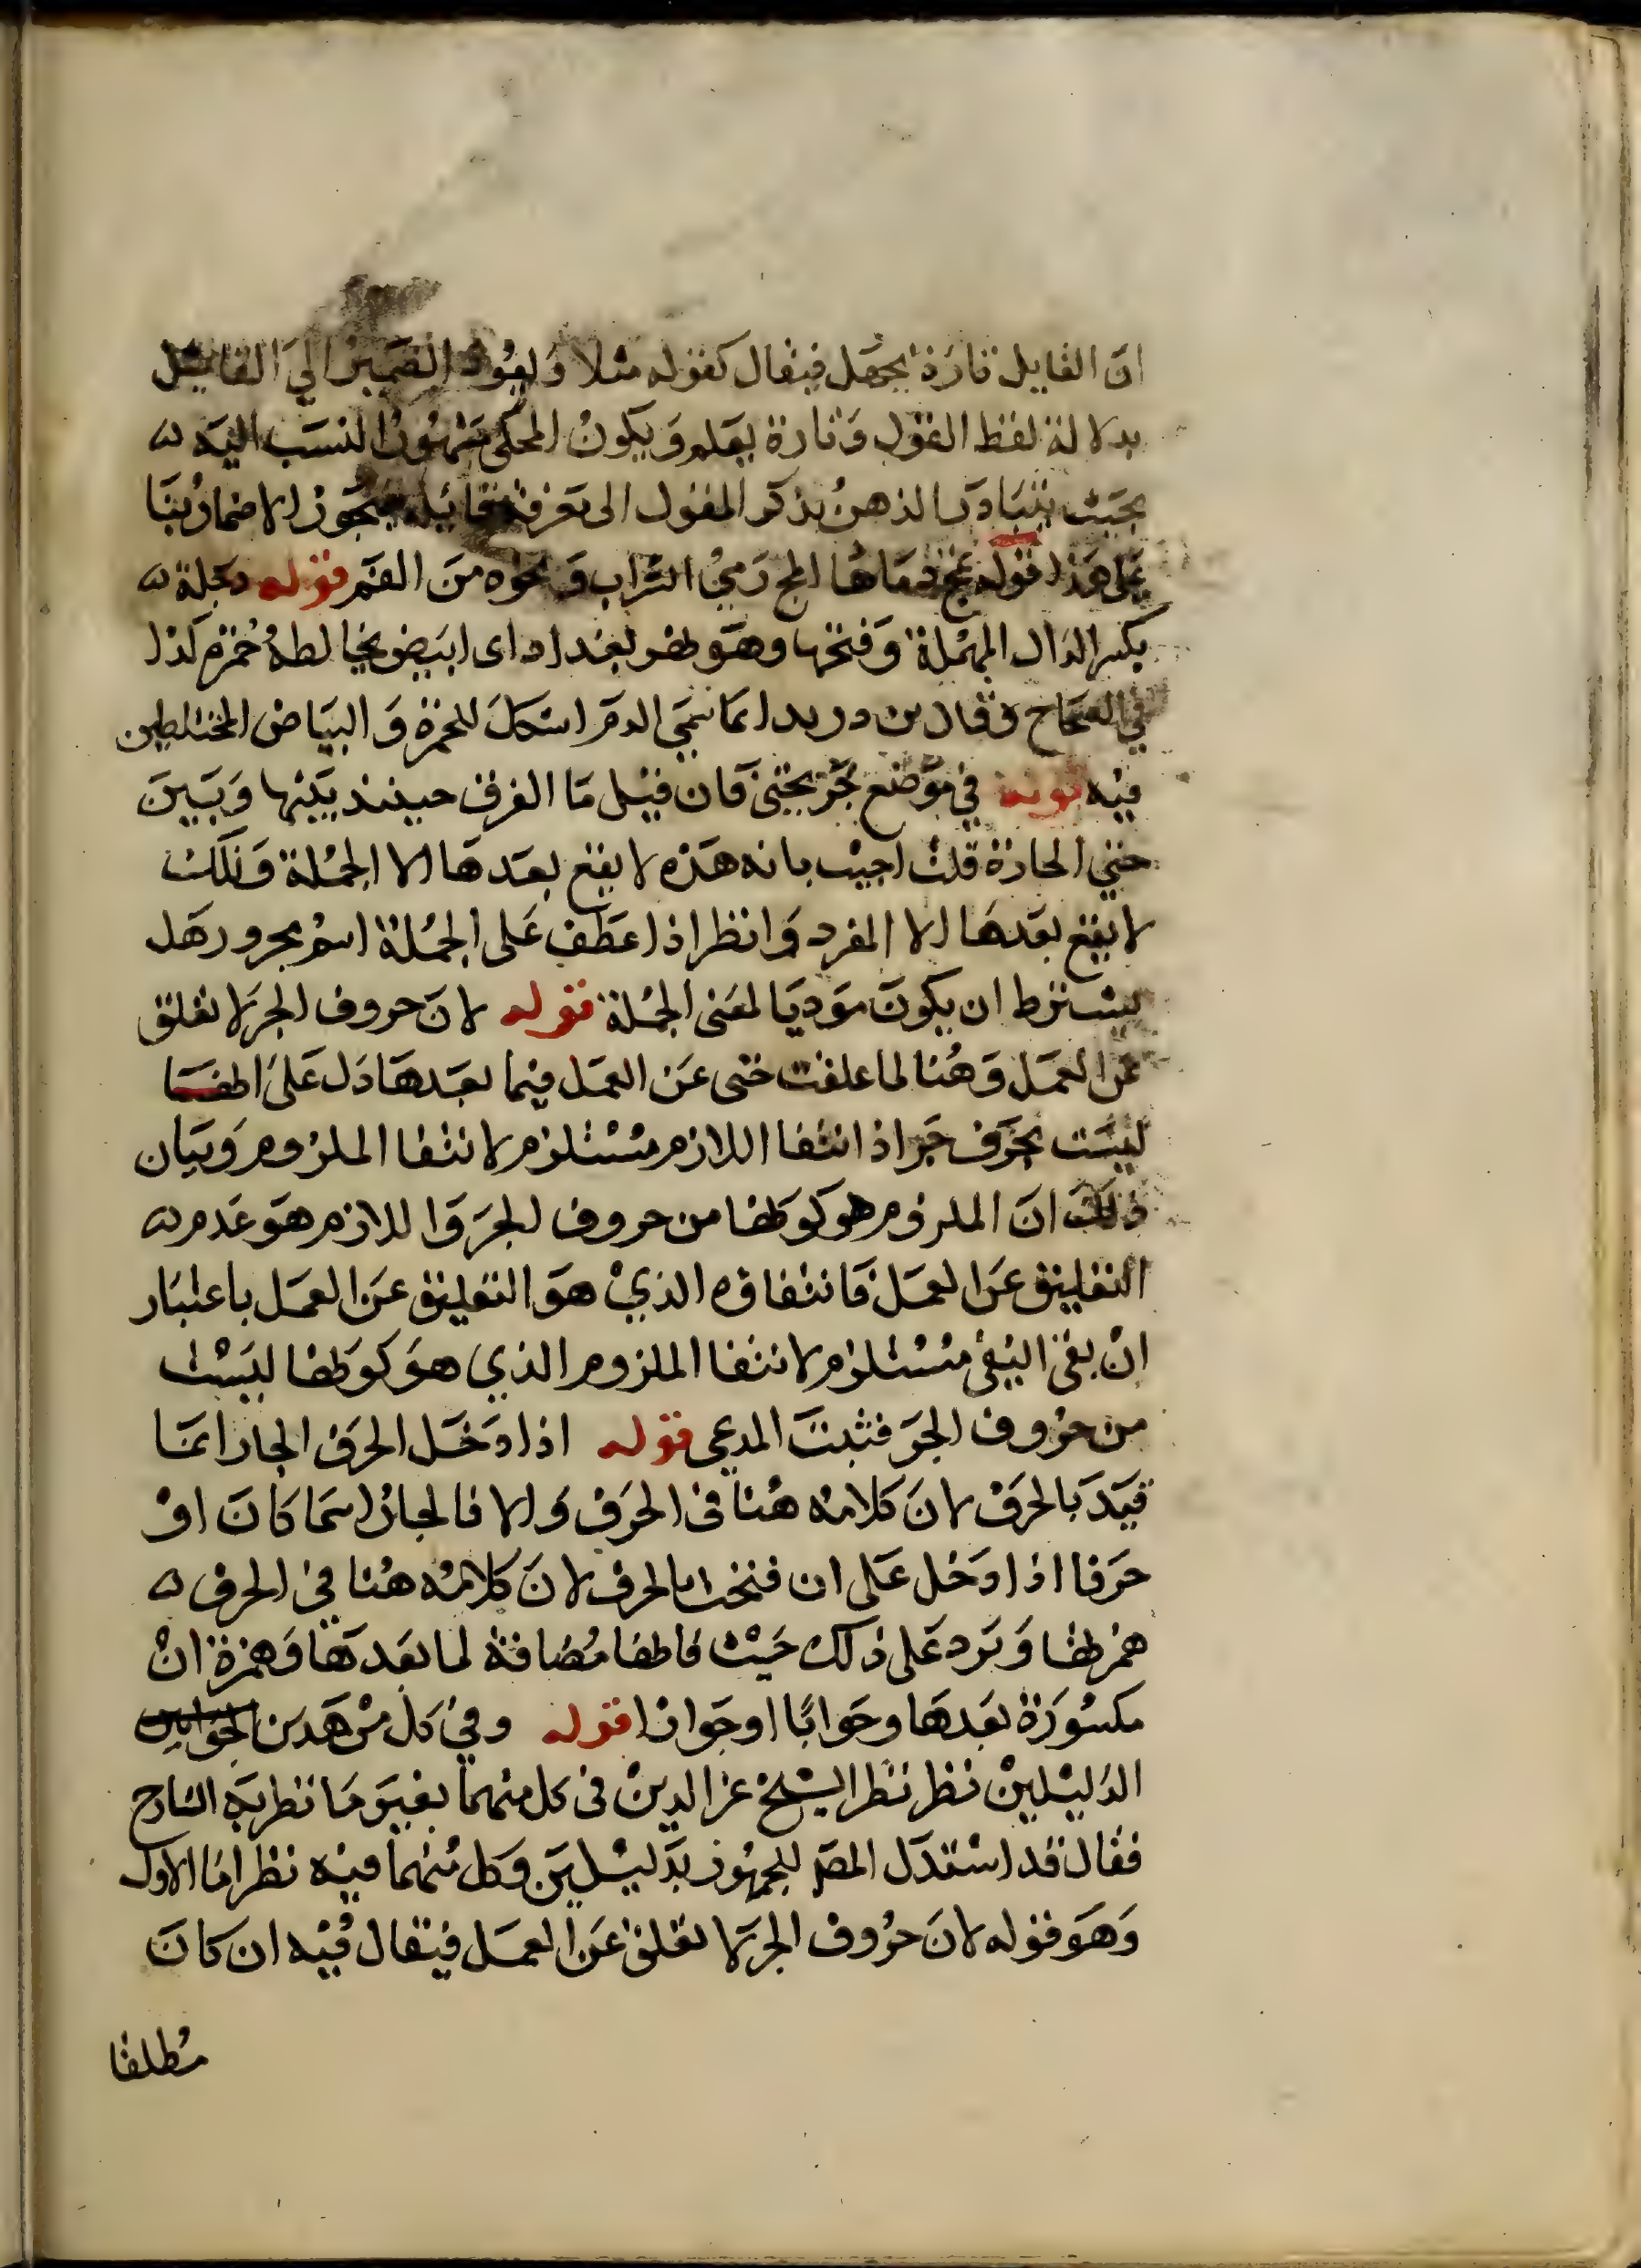 ان القايل تارة يجهل فيقال كقوله مثلا ويعود الضمير الى القايل
بدلالة لفظ القول وتارة يعلم ويكون المحكى مشهور النسب اليه
بحيث يتبادر الذهن بذكر المقول الى تعرفة قايله فيجوز الاضمار بنا
على هذا قوله تمج دماها المج رمي التراب ونحوه من الفم قوله دجلة
بكسر الدال المهملة وفتحها وهو نهر بغداد اى ابيض يخالطه حمرة كذا
في الصحاح وقال بن دريد انما سمي الدم اشكل للحمرة والبياض المختلطين
فيه قوله في موضع جر بحتى فان قيل ما الفرق حينئذ بينها وبين
حتي الجارة قلت اجيب بانه هذه لا يقع بعدها الا الجملة وتلك
لا يقع بعدها الا المفرد وانظر اذا عطف على الجملة اسم مجرور هل
يشترط ان يكون موديا لمعنى الجملة قوله لان حروف الجر لا تعلق
عن العمل وهنا لما علقت حتى عن العمل فيما بعدها دل على انها
ليست بحرف جر اذ انتفا اللازم مستلزم لانتفا الملزوم وبيان
ذلك ان الملزوم هو كونها من حروف الجر واللازم هو عدم
التعليق عن العمل فانتفاؤه الذي هو التعليق عن العمل باعتبار
ان نفى النفى مستلزم لانتفا الملزوم الذي هو كونها ليست
من حروف الجر فثبت المدعى قوله اذا دخل الحرف الجار انما
قيد بالحرف لان كلامه هنا فى الحرف والا فالجار اسما كان او
حرفا اذا دخل على ان فتحت بالحرف لان كلامه هنا في الحرف
همزتها ويرد على ذلك حيث فانها مضافة لما بعدها وهمزة ان
مكسورة بعدها وجوابا او جوازا قوله وفي كل من هدين الجوابين
الدليلين نظر نظر الشيخ عز الدين فى كل منهما بغير ما نظر به الشارح
فقال قد استدل المص للجمهور بدليلين وكل منهما فيه نظر اما الاول
وهو قوله لان حروف الجر لا تعلق عن العمل فيقال فيه ان كان
مطلقا